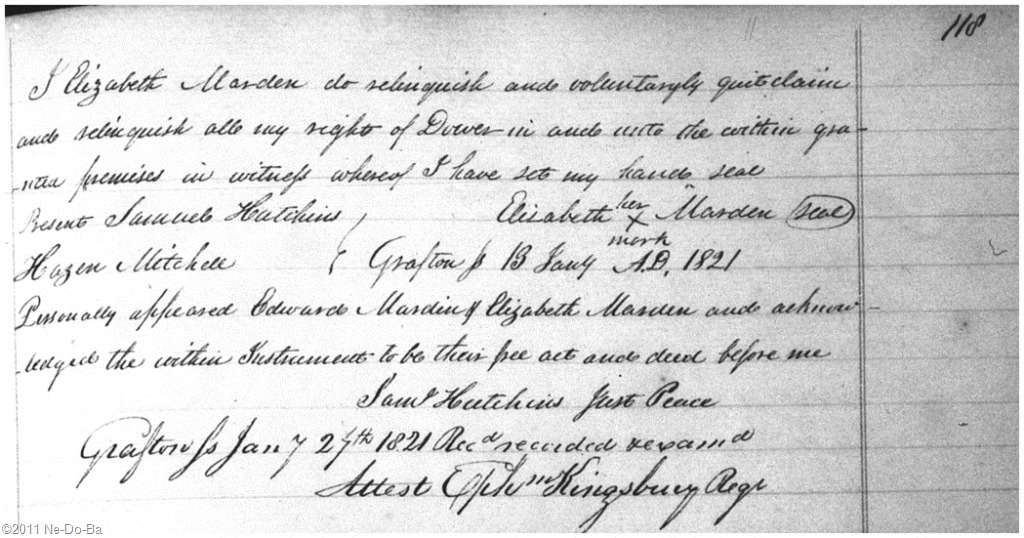 118
I Elizabeth Marden do relinquish and voluntaryly quitclaim
and relinquish all my right of Dower in and unto the within gra-
nted premises in witness whereof I have set my hand seal
Present Samuel Hutchins Elisabeth her X mark Marden (seal)
Hazen Mitchell Grafton ss 13 Jany A.D. 1821
Personally appeared Edward Mardin & Elizabeth Marden and acknow-
ledged the within Instrument to be their free act and deed before me
Saml Hutchins Just Peace
Grafton ss Jany 27th 1821 Recd recorded & examd
Attest Ephm Kingsbury Regr
©2011 Ne-Do-Ba